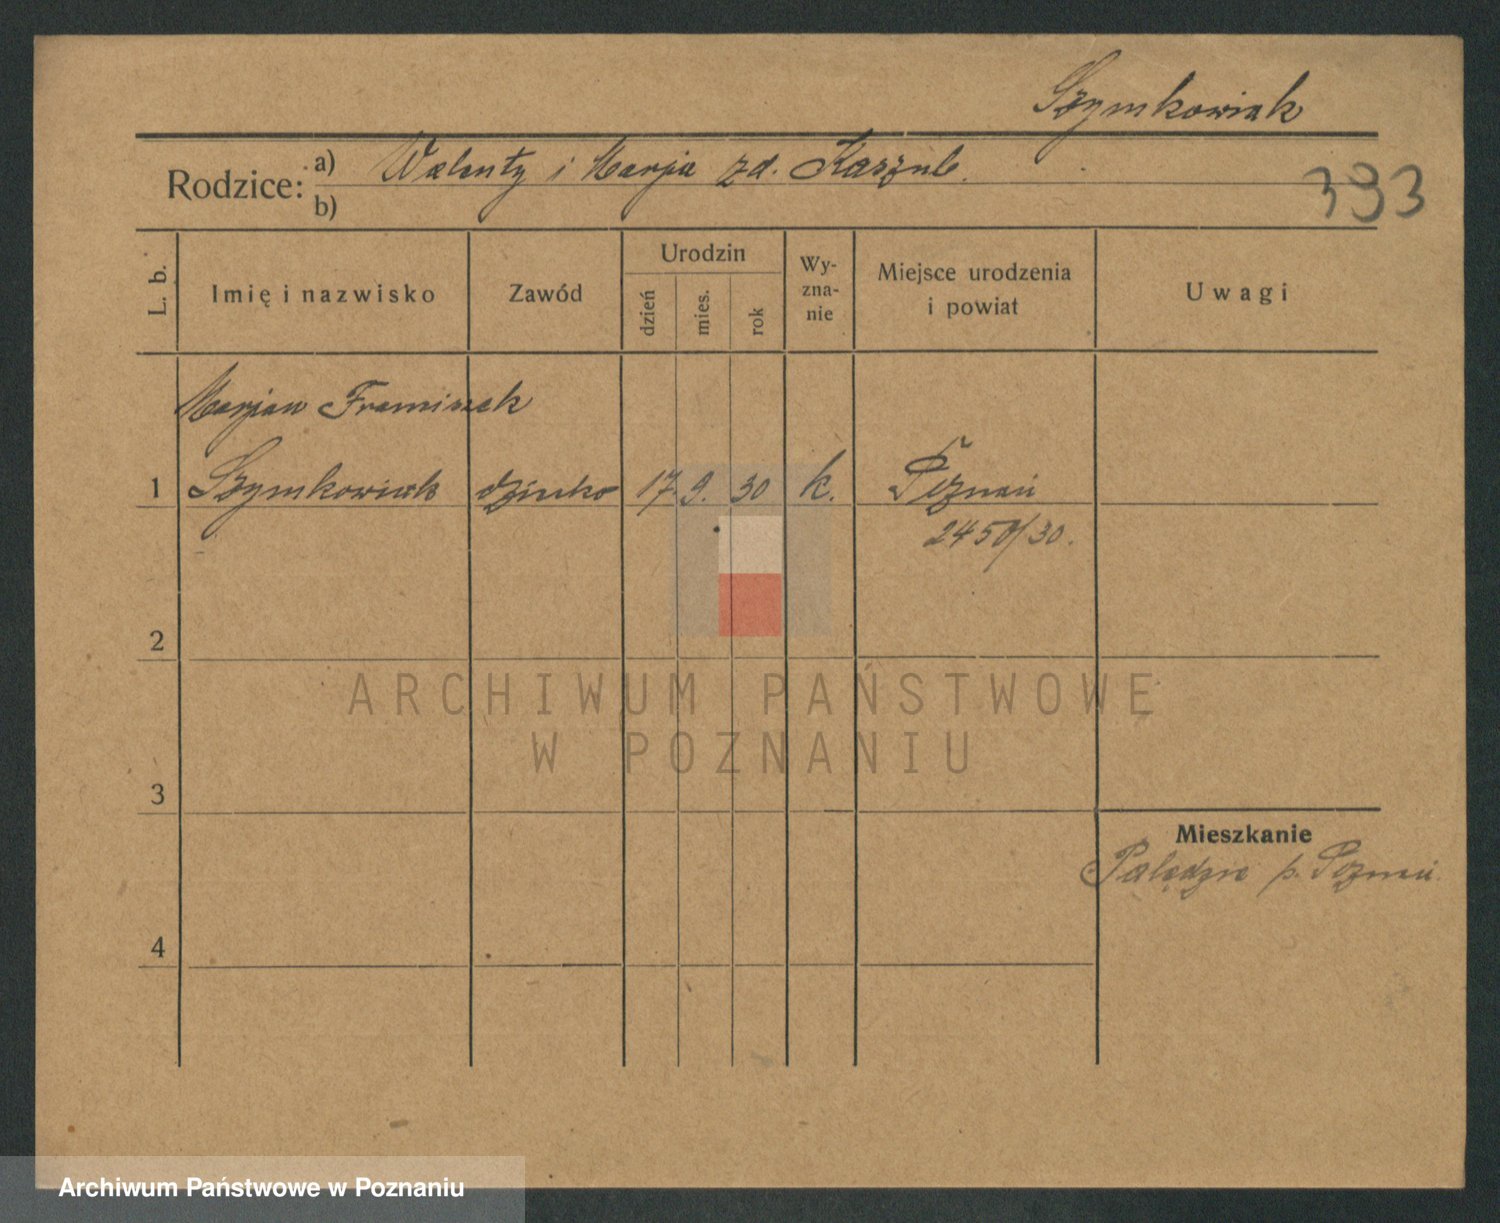 Szymkowiak
Rodzice: a) Walenty i Marja zd. Kaszub.
b)
393
L. b.
Imię i nazwisko
Zawód
Urodzin
dzień
mies.
rok
Wy-
zna-
nie
Miejsce urodzenia
i powiat
Uwagi
Marjan Franciszek
1 Szymkowiak dziecko 17. 9. 30 k. Poznań
2450/30.
2
3
4
Mieszkanie
Palędzie p. Poznań.
ARCHIWUM PAŃSTWOWE
W POZNANIU
Archiwum Państwowe w Poznaniu